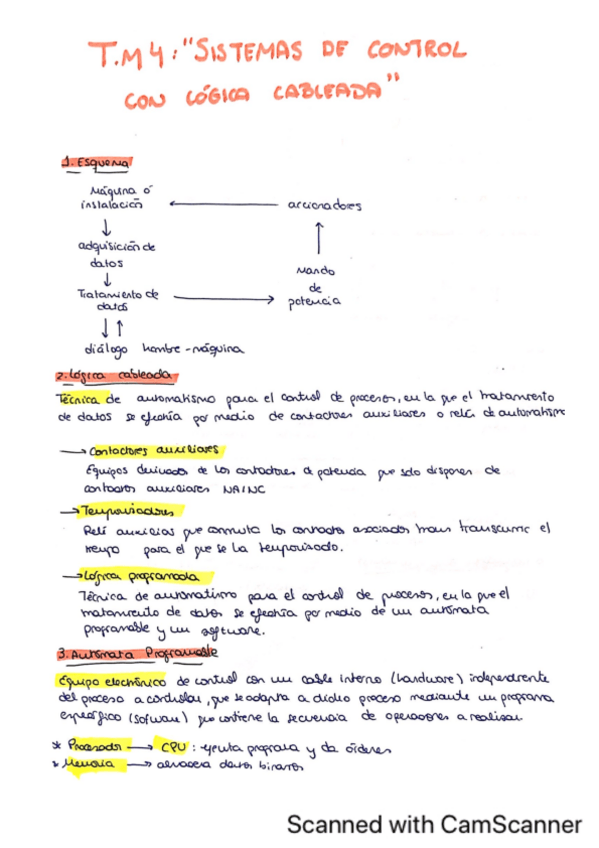 T.M 4: "SISTEMAS DE CONTROL
CON LÓGICA CABLEADA"
1. Esquema
Máquina ó
instalación
accionadores
adquisición de
datos
Mando
de
potencia
Tratamiento de
datos
diálogo hombre-máquina
2. Lógica cableada
Técnica de automatismo para el control de procesos, en la que el tratamiento
de datos se efectúa por medio de contactores auxiliares o relés de automatismo
→ Contactores auxiliares
Equipos derivados de los contactores de potencia que solo disponen de
contactos auxiliares NA/NC
→ Temporizadores
Relé auxiliar que conmuta los contactos asociados tras transcurrir el
tiempo para el que se ha temporizado.
→ Lógica programada
Técnica de automatismo para el control de procesos, en la que el
tratamiento de datos se efectúa por medio de un autómata
programable y un software.
3. Autómata Programable
Equipo electrónico de control con un cable interno (hardware) independiente
del proceso a controlar, que se adapta a dicho proceso mediante un programa
específico (software) que contiene la secuencia de operaciones a realizar
* Procesador → CPU: ejecuta programa y da órdenes
* Memoria → almacena datos binarios
Scanned with CamScanner